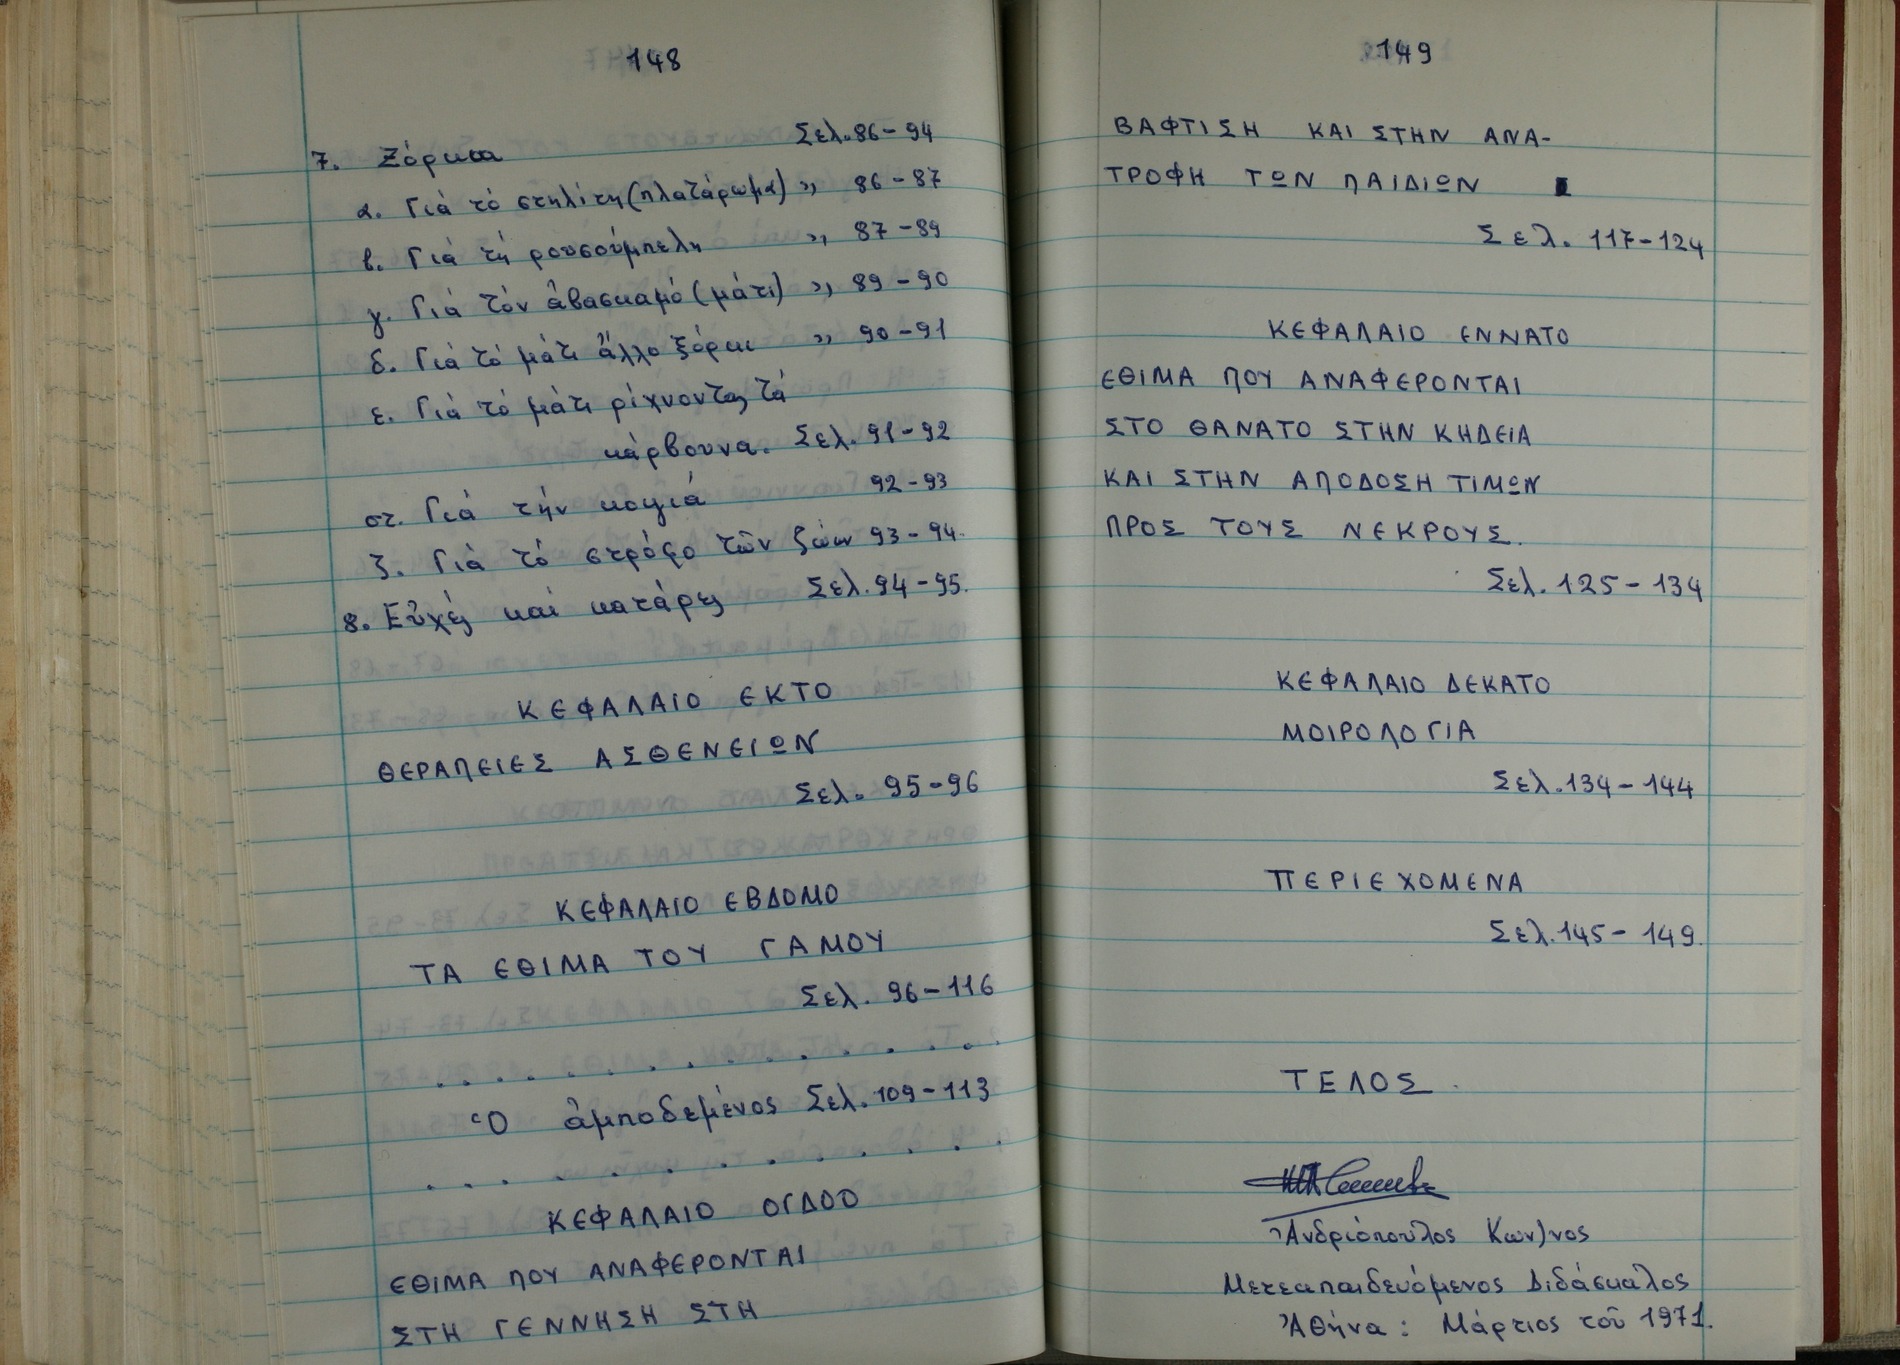 148
7. Ξόρκια Σελ. 86-94
α. Γιά τό στηλίτη (πλατάρωμα) ,, 86-87
β. Γιά τή ρουσούμπελη ,, 87-89
γ. Γιά τόν ἀβασκαμό (μάτι) ,, 89-90
δ. Γιά τό μάτι ἄλλο ξόρκι ,, 90-91
ε. Γιά τό μάτι ρίχνοντας τά
κάρβουνα. Σελ. 91-92
στ. Γιά τήν κοψιά 92-93
ζ. Γιά τό στρόφο τῶν ζώων 93-94.
8. Εὐχές καί κατάρες Σελ. 94-95.
ΚΕΦΑΛΑΙΟ ΕΚΤΟ
ΘΕΡΑΠΕΙΕΣ ΑΣΘΕΝΕΙΩΝ
Σελ. 95-96
ΚΕΦΑΛΑΙΟ ΕΒΔΟΜΟ
ΤΑ ΕΘΙΜΑ ΤΟΥ ΓΑΜΟΥ
Σελ. 96-116
. . . . . . . . . . . . . .
Ὁ ἀμποδεμένος Σελ. 109-113
. . . . . . . . . . . . . .
ΚΕΦΑΛΑΙΟ ΟΓΔΟΟ
ΕΘΙΜΑ ΠΟΥ ΑΝΑΦΕΡΟΝΤΑΙ
ΣΤΗ ΓΕΝΝΗΣΗ ΣΤΗ
149
ΒΑΦΤΙΣΗ ΚΑΙ ΣΤΗΝ ΑΝΑ-
ΤΡΟΦΗ ΤΩΝ ΠΑΙΔΙΩΝ
Σελ. 117-124
ΚΕΦΑΛΑΙΟ ΕΝΝΑΤΟ
ΕΘΙΜΑ ΠΟΥ ΑΝΑΦΕΡΟΝΤΑΙ
ΣΤΟ ΘΑΝΑΤΟ ΣΤΗΝ ΚΗΔΕΙΑ
ΚΑΙ ΣΤΗΝ ΑΠΟΔΟΣΗ ΤΙΜΩΝ
ΠΡΟΣ ΤΟΥΣ ΝΕΚΡΟΥΣ.
Σελ. 125-134
ΚΕΦΑΛΑΙΟ ΔΕΚΑΤΟ
ΜΟΙΡΟΛΟΓΙΑ
Σελ. 134-144
ΠΕΡΙΕΧΟΜΕΝΑ
Σελ. 145-149.
ΤΕΛΟΣ.
Ἀνδριόπουλος Κων)νος
Μετεκπαιδευόμενος Διδάσκαλος
Ἀθήνα: Μάρτιος τοῦ 1971.